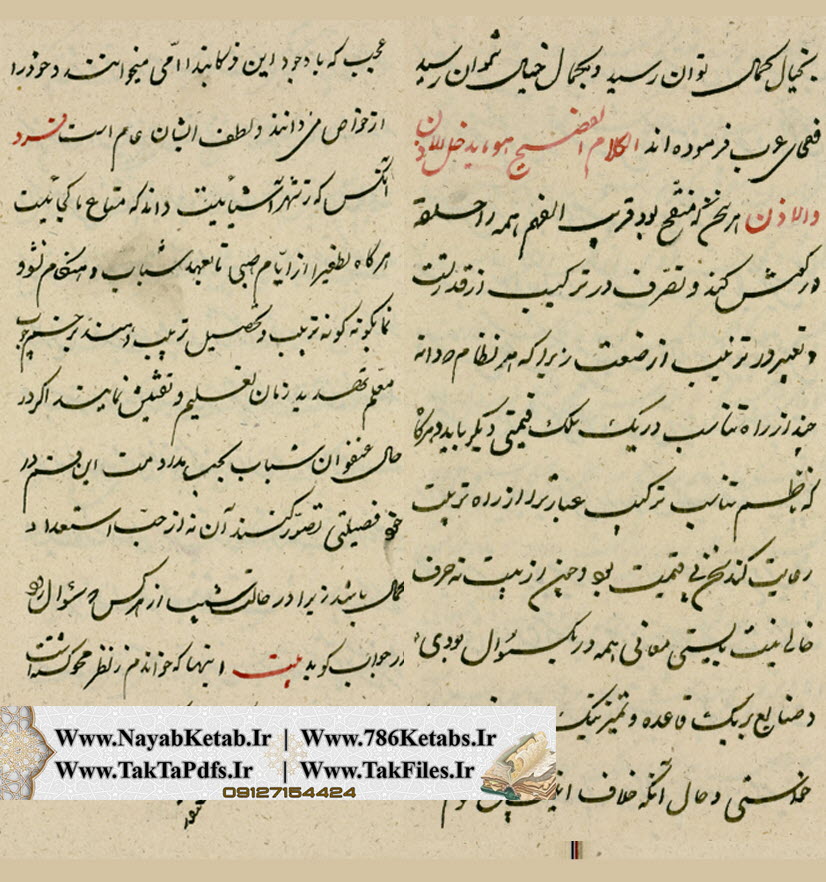 بخیال کمال توان رسید و بکمال خیال نتوان رسید
فصحای عرب فرموده اند الکلام الفصیح هو ما یدخل للاذن
والاذن هر سخن که منقح بود قریب الفهم همه را حلقه
در گوش کند و تصرف در ترکیب از قدرتست
و تعبیر در ترتیب از صنعت زیرا که هر نظام دانه
چند از راه تناسب در یک سلک قیمتی دیگر یابد و هرگاه
که ناظم تناسب ترکیب عبارت را از راه تربیت
رعایت کند سخن بی قیمت بود و حین از نیت نه حرف
خالی نیست بایستی معانی همه در یک سئوال بودی
و صنایع بر یک قاعده و تمیز نیک
و حال آنکه خلاف
عجب که با وجود این امی میخوانند و خود را
از خواص می دانند و لطف ایشان عام است فرد
آنکس که ز شهر آشنائیست داند که متاع ما کجائیست
هرگاه از ایام صبی تا بعهد شباب و هنگام نشو و
نما بگونه گونه تربیت و تحصیل ترتیب دهند بر حسب چوب
معلم تهدید زمان تعلیم و تفتیش نمایند اگر در
حال عنفوان شباب بحسب مدد این قسم در
خود فضیلتی تصور کنند آن نه از حب استعداد
کمال باشد زیرا در حالت شیب از هر کس سئوال رود
در جواب گوید بیت اینها که خواندم ز نظر محو گشته است
Www.NayabKetab.Ir | Www.786Ketabs.Ir
Www.TakTaPdfs.Ir | Www.TakFiles.Ir
09127154424